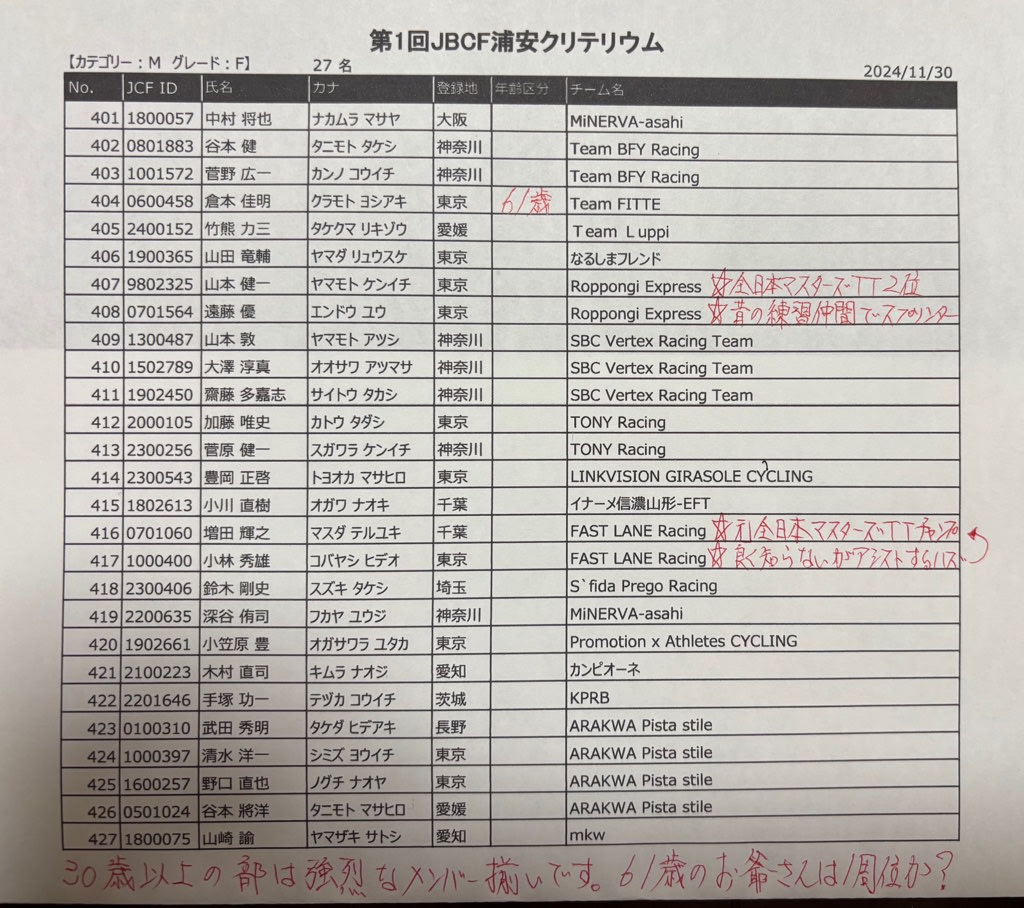 第1回JBCF浦安クリテリウム
【カテゴリー：M グレード：F】 27 名 2024/11/30
No. JCF ID 氏名 カナ 登録地 年齢区分 チーム名
401 1800057 中村 将也 ナカムラ マサヤ 大阪 MiNERVA-asahi
402 0801883 谷本 健 タニモト タケシ 神奈川 Team BFY Racing
403 1001572 菅野 広一 カンノ コウイチ 神奈川 Team BFY Racing
404 0600458 倉本 佳明 クラモト ヨシアキ 東京 61歳 Team FITTE
405 2400152 竹熊 力三 タケクマ リキゾウ 愛媛 Team Luppi
406 1900365 山田 竜輔 ヤマダ リュウスケ 東京 なるしまフレンド
407 9802325 山本 健一 ヤマモト ケンイチ 東京 Roppongi Express ☆全日本マスターズTT2位
408 0701564 遠藤 優 エンドウ ユウ 東京 Roppongi Express ☆昔の練習仲間でスプリンター
409 1300487 山本 敦 ヤマモト アツシ 神奈川 SBC Vertex Racing Team
410 1502789 大澤 淳真 オオサワ アツマサ 神奈川 SBC Vertex Racing Team
411 1902450 齋藤 多嘉志 サイトウ タカシ 神奈川 SBC Vertex Racing Team
412 2000105 加藤 唯史 カトウ タダシ 東京 TONY Racing
413 2300256 菅原 健一 スガワラ ケンイチ 神奈川 TONY Racing
414 2300543 豊岡 正啓 トヨオカ マサヒロ 東京 LINKVISION GIRASOLE CYCLING
415 1802613 小川 直樹 オガワ ナオキ 千葉 イナーメ信濃山形-EFT
416 0701060 増田 輝之 マスダ テルユキ 千葉 FAST LANE Racing ☆元全日本マスターズTTチャンプ
417 1000400 小林 秀雄 コバヤシ ヒデオ 東京 FAST LANE Racing ☆良く知らないがアシストするハズ
418 2300406 鈴木 剛史 スズキ タケシ 埼玉 S`fida Prego Racing
419 2200635 深谷 侑司 フカヤ ユウジ 神奈川 MiNERVA-asahi
420 1902661 小笠原 豊 オガサワラ ユタカ 東京 Promotion x Athletes CYCLING
421 2100223 木村 直司 キムラ ナオジ 愛知 カンピオーネ
422 2201646 手塚 功一 テヅカ コウイチ 茨城 KPRB
423 0100310 武田 秀明 タケダ ヒデアキ 長野 ARAKWA Pista stile
424 1000397 清水 洋一 シミズ ヨウイチ 東京 ARAKWA Pista stile
425 1600257 野口 直也 ノグチ ナオヤ 東京 ARAKWA Pista stile
426 0501024 谷本 將洋 タニモト マサヒロ 愛媛 ARAKWA Pista stile
427 1800075 山崎 諭 ヤマザキ サトシ 愛知 mkw
30歳以上の部は強烈なメンバー揃いです。61歳のお爺さんは1周位か？